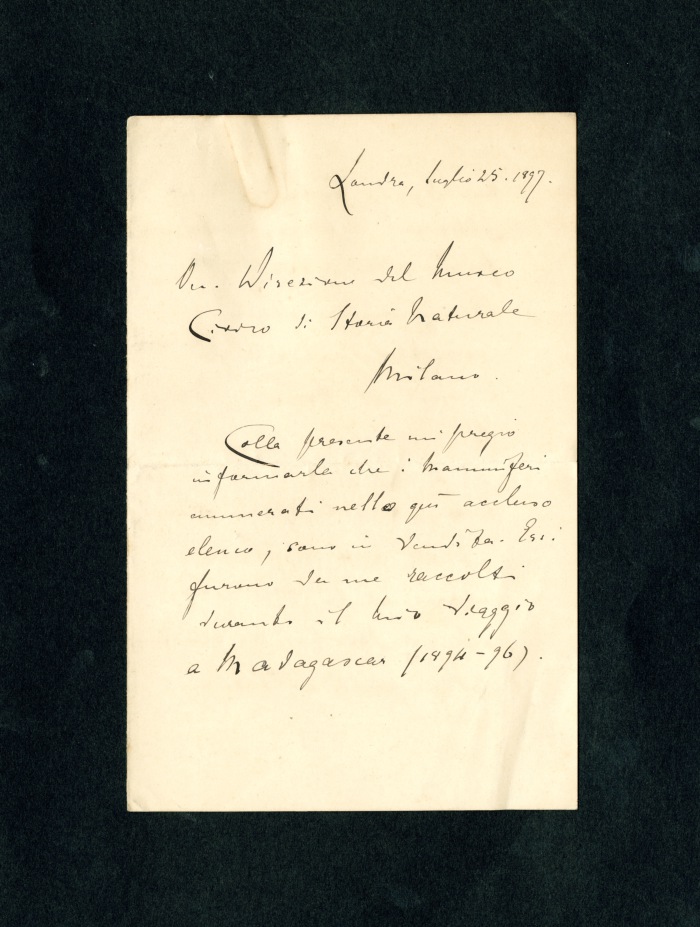 Londra, luglio 25. 1897.
On. Direzione del Museo
Civico di Storia Naturale
Milano.
Colla presente mi pregio
informarla che i mammiferi
enumerati nello qui accluso
elenco, sono in vendita. Essi
furono da me raccolti
durante il mio viaggio
a Madagascar (1894-96).